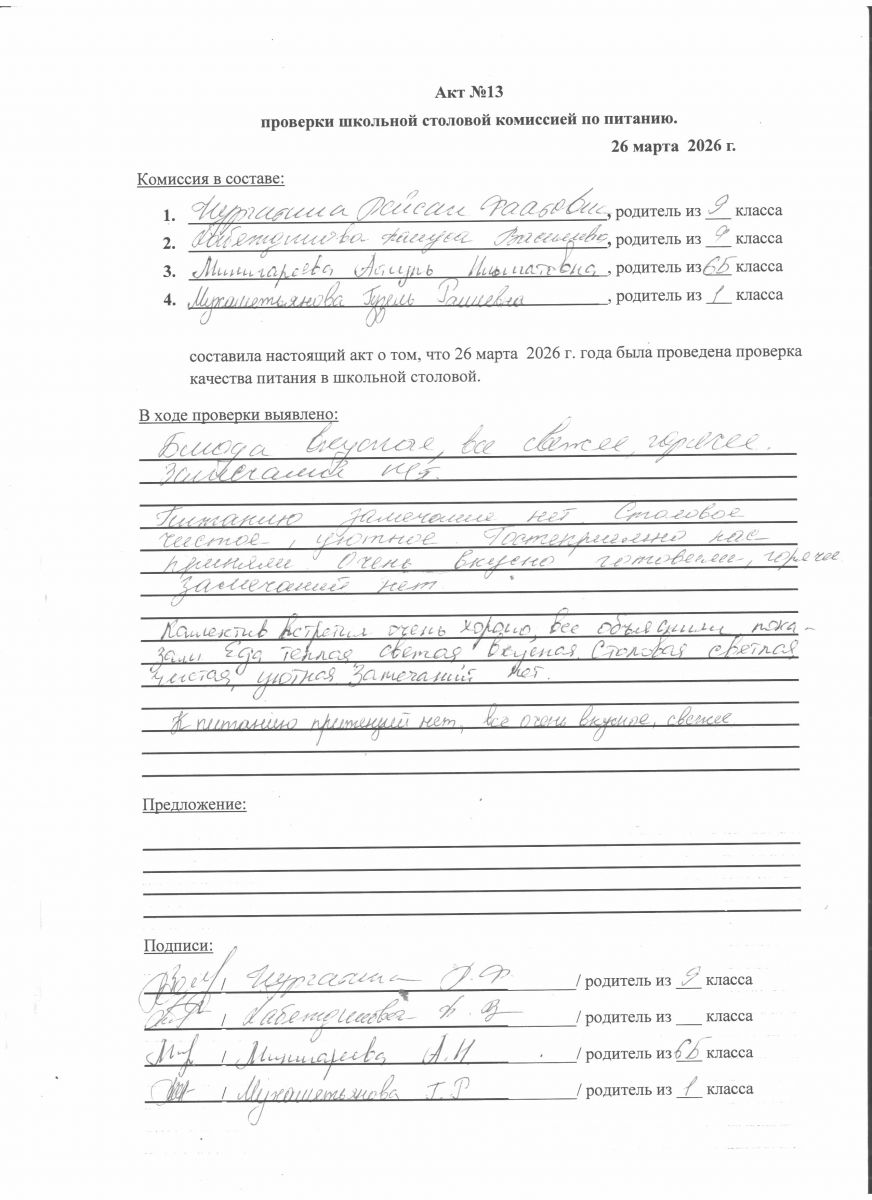 Акт №13
проверки школьной столовой комиссией по питанию.
26 марта 2026 г.
Комиссия в составе:
1. , родитель из 9 класса
2. , родитель из 9 класса
3. Минигареева Нишатовна, родитель из 6Б класса
4. Мухаметьянова Гузель Рашевна, родитель из 1 класса
составила настоящий акт о том, что 26 марта 2026 г. года была проведена проверка
качества питания в школьной столовой.
В ходе проверки выявлено:
Блюда вкусная, все свежее, горячее.
Замечаний нет.
замечание нет. Столовое
чистое, уютное. Гостеприимно нас
приняли Очень вкусно готовели, горячее
Замечаний нет
Коллектив встретил очень хорошо, все объяснили, пока-
зали Еда теплая светая вкусная. Столовая светлая
чистая, уютная Замечаний нет.
К питанию притенций нет, все очень вкусное, свежее
Предложение:
Подписи:
/ / родитель из 9 класса
/ / родитель из ___ класса
/ Минигареева А.Н / родитель из 6Б класса
/ Мухаметьянова Г.Р / родитель из 1 класса